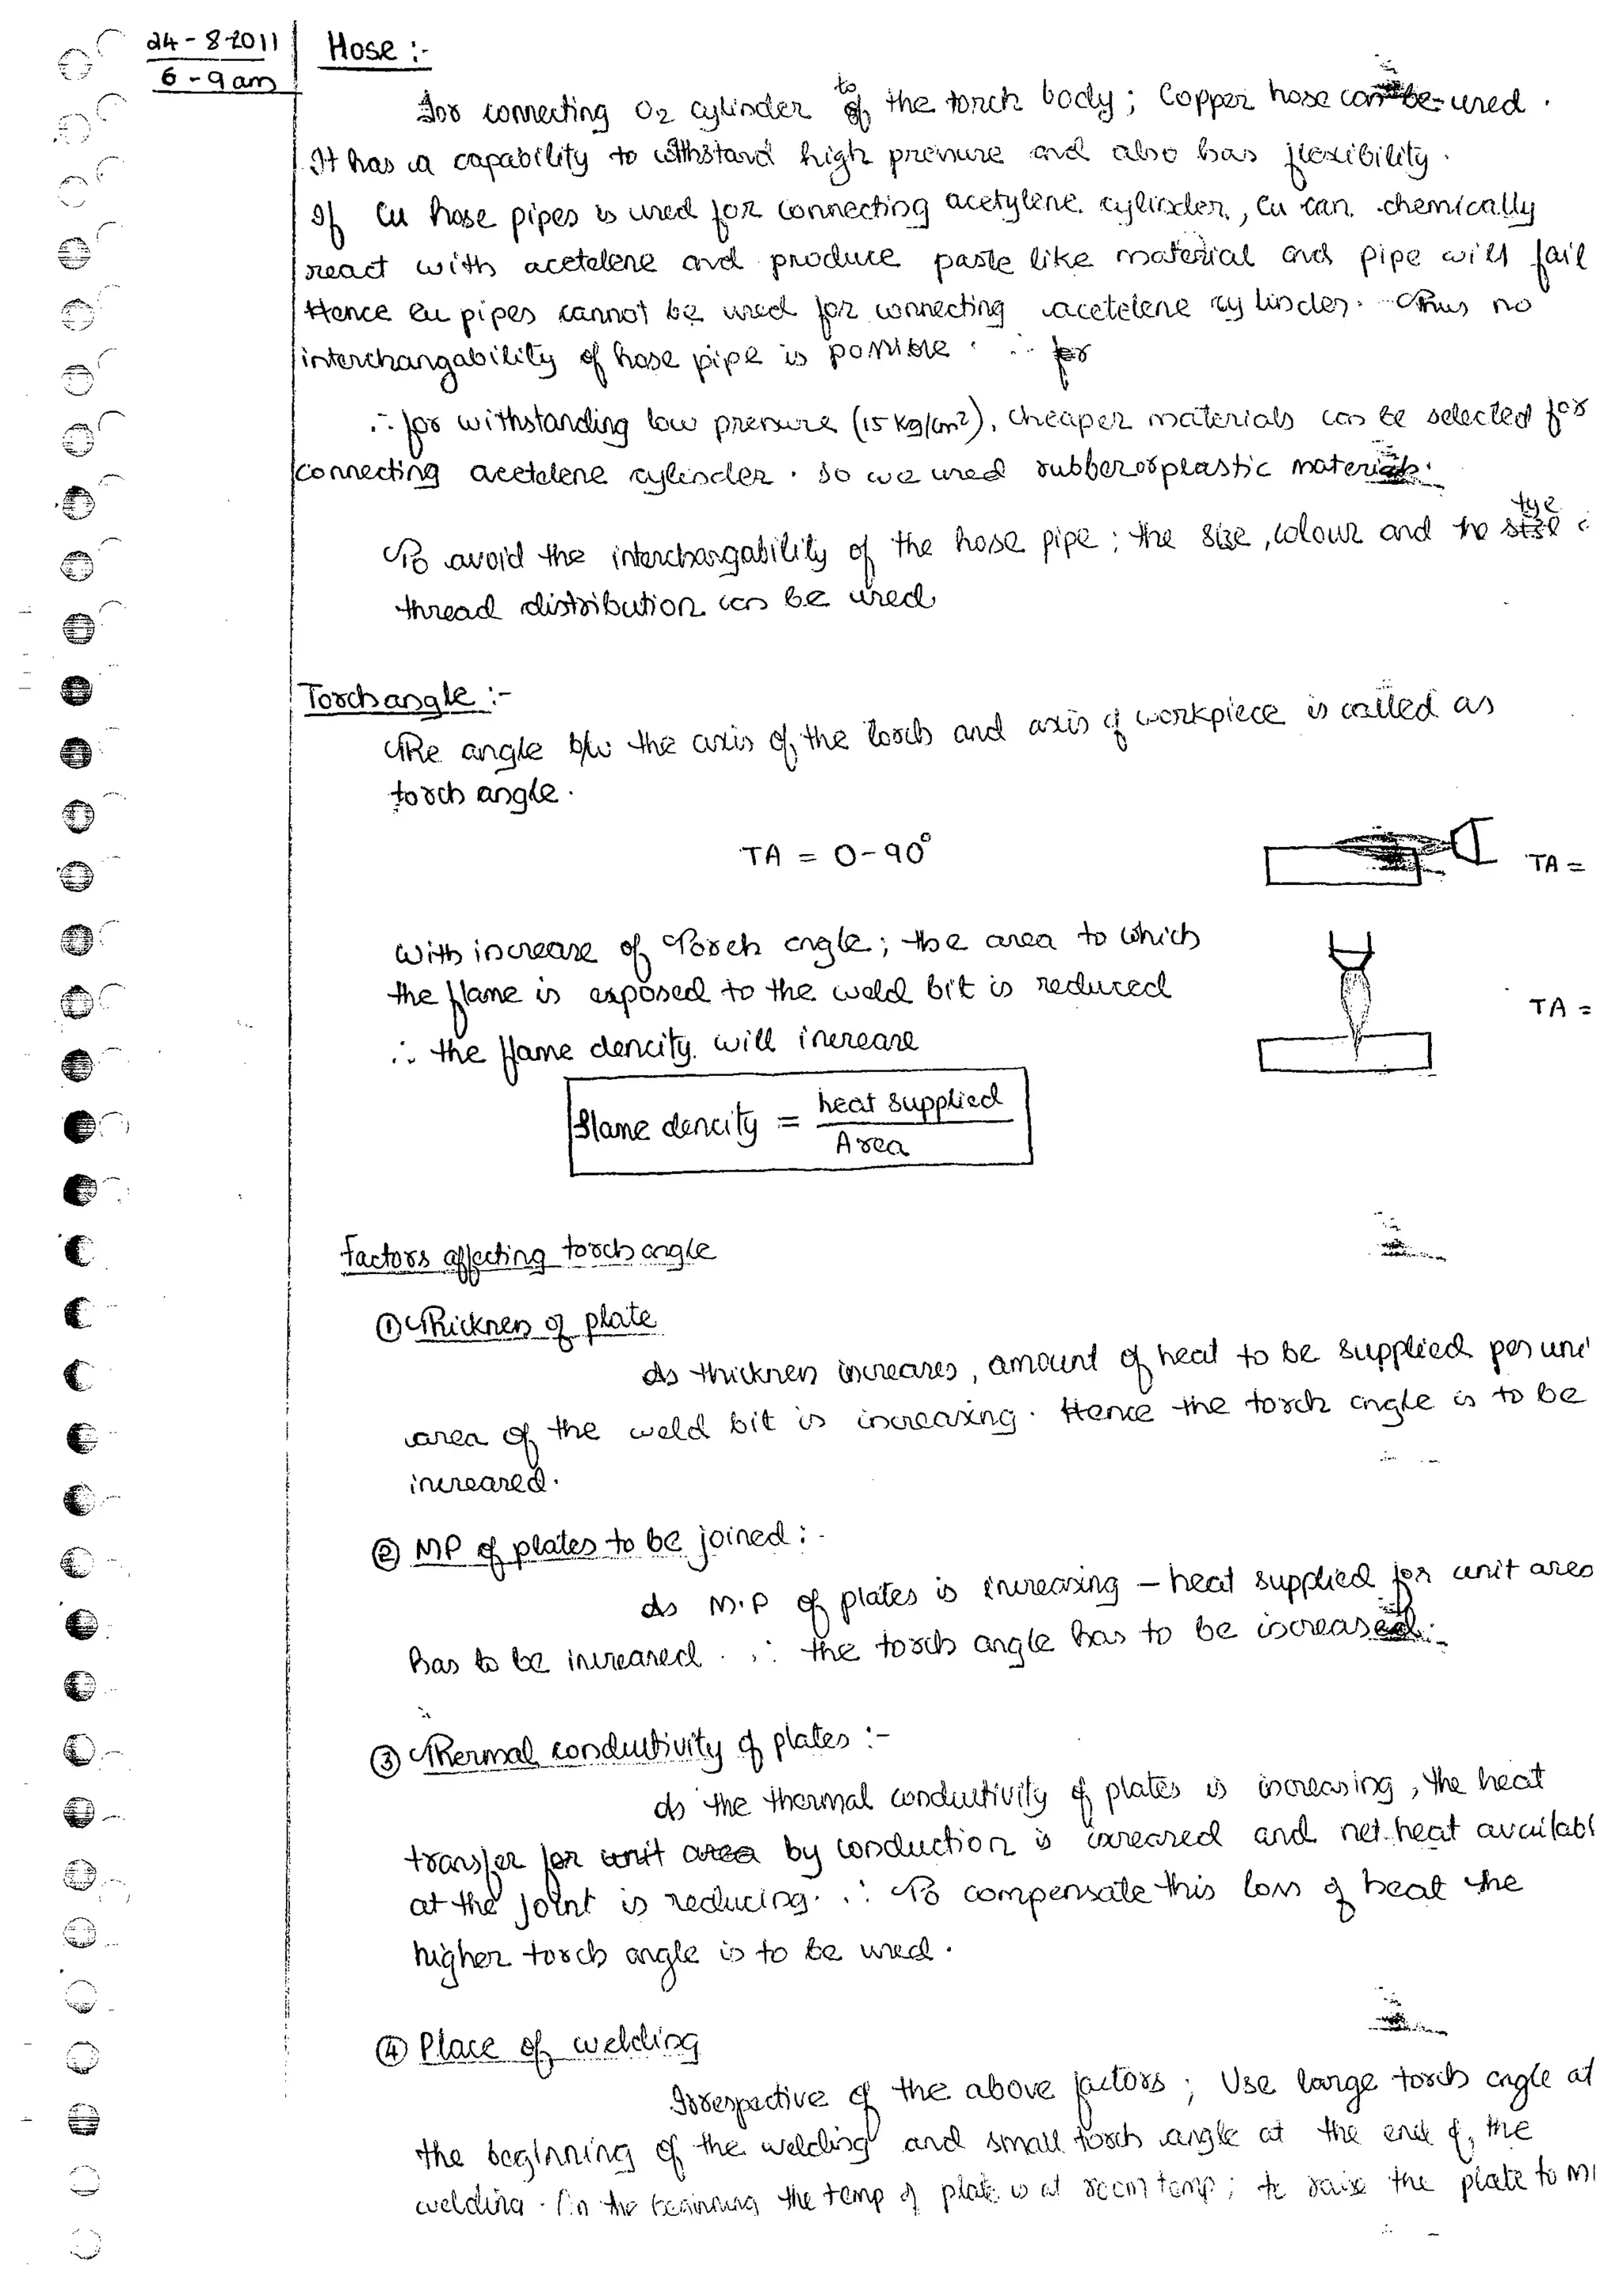 24-8-2011
6-9am
Hose :-
to
For connecting O2 cylinder of the torch body; Copper hose can be used.
It has a capability to withstand high pressure and also has flexibility.
If Cu hose pipes is used for connecting acetylene cylinder, Cu can chemically
react with acetelene and produce paste like material and pipe will fail
Hence Cu pipes cannot be used for connecting acetelene cylinder. Thus no
interchangability of hose pipe is possible. ∴ for
∴ for withstanding low pressure (15 kg/cm²), cheaper materials can be selected for
connecting acetelene cylinder. So we used rubber or plastic materials.
tye
To avoid the interchangability of the hose pipe; the size, colour and the
thread distribution can be used
Torch angle :-
The angle b/w the axis of the torch and axis of workpiece is called as
torch angle.
TA = 0-90°
TA =
With increase of Torch angle; the area to which
the flame is exposed to the weld bit is reduced
TA =
∴ the flame dencity will increase
Flame dencity = heat supplied
Area
Factors affecting torch angle
① Thickness of plate
As thickness increases, amount of heat to be supplied per uni
area of the weld bit is increasing. Hence the torch angle is to be
increased.
② MP of plates to be joined :-
As M.P of plates is increasing - heat supplied for unit area
has to be increased. ∴ the torch angle has to be increased.
③ Thermal conductivity of plates :-
As the thermal conductivity of plates is increasing, the heat
transfer for unit area by conduction is increased and net heat availabl
at the joint is reducing. ∴ To compensate this loss of heat the
higher torch angle is to be used.
④ Place of welding
Irrespective of the above factors; Use large torch angle at
the beginning of the welding and small torch angle at the end of the
welding. (in the beginning the temp of plate is at room temp; to raise the plate to M